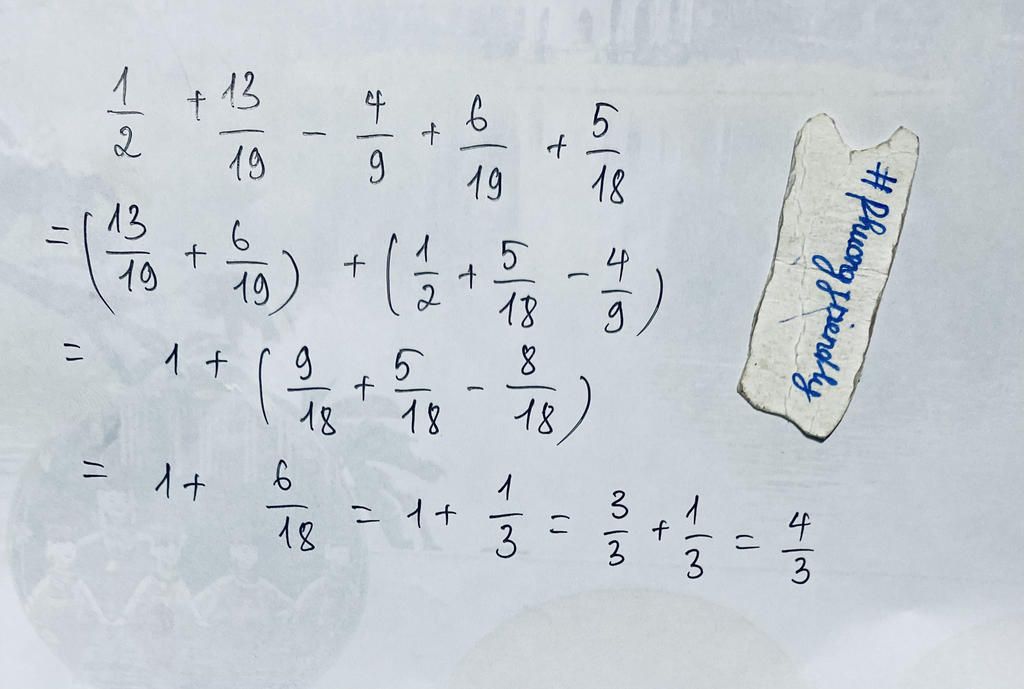 1/2 + 13/19 - 4/9 + 6/19 + 5/18
= (13/19 + 6/19) + (1/2 + 5/18 - 4/9)
= 1 + (9/18 + 5/18 - 8/18)
= 1 + 6/18 = 1 + 1/3 = 3/3 + 1/3 = 4/3
#phuongfriendly